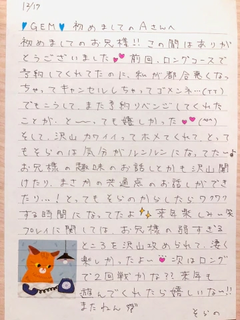 12/17
♥GEM♥ 初めましてのAさんへ
初めましてのお兄様!! この間はありが
とうございました♥♥ 前回、ロングコースで
予約してくれてたのに、私が都合悪くなっ
ちゃってキャンセルしちゃってゴメンネー(TT)
でもこうして、また予約リベンジしてくれた
ことが、と〜〜、ても嬉しかった♥♥(^^)
そして、沢山カワイイってホメてくれて、とっ
てもそらのは気分がルンルンになってた〜
お兄様の趣味のお話しとかも沢山聞
けたり、まさかの共通点のお話しができ
たり…!と、てもそのからしたらワクワク
する時間になってたよ✨ 来年楽しみ〜
プレイに関しては、お兄様の弱すぎる
ところを沢山攻められて、凄く
楽しかったよー 次はロング
で2回戦かな?? 来年も
遊んでくれたら嬉しいな!!
またねん
そらの